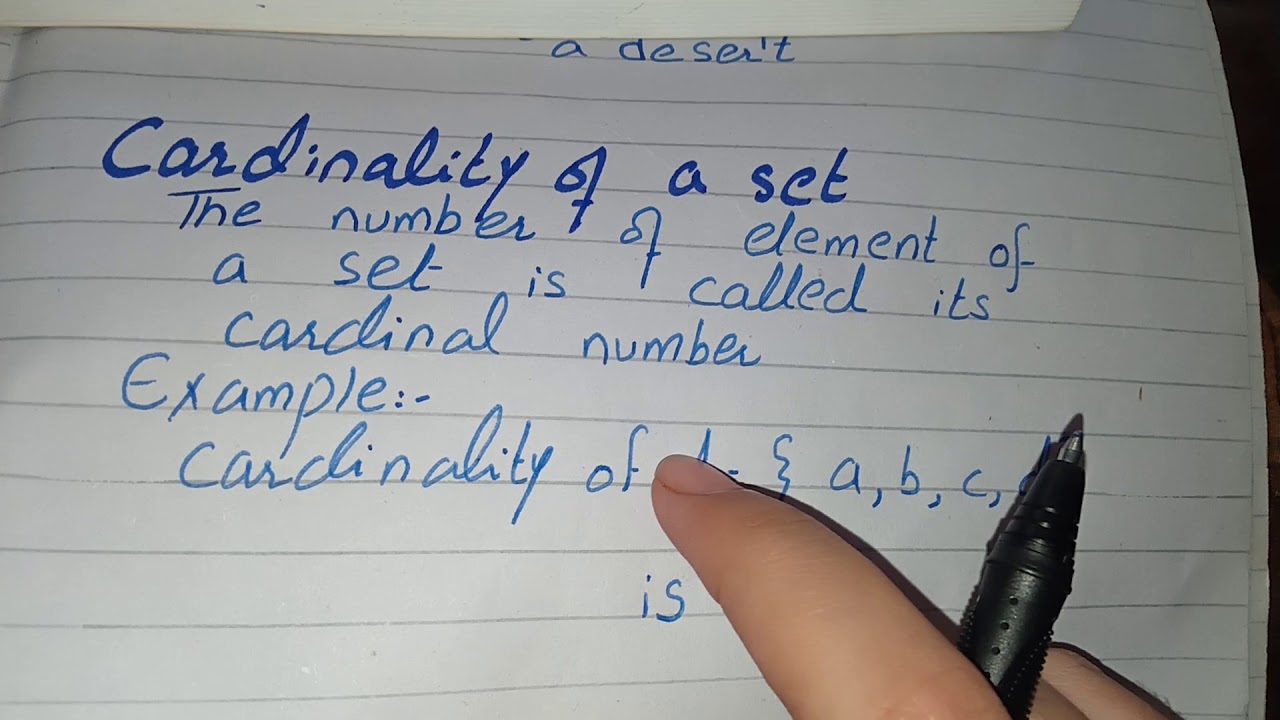 a desert
Cardinality of a set
The number of element of
a set is called its
cardinal number
Example:-
Cardinality of { a, b, c, d
is